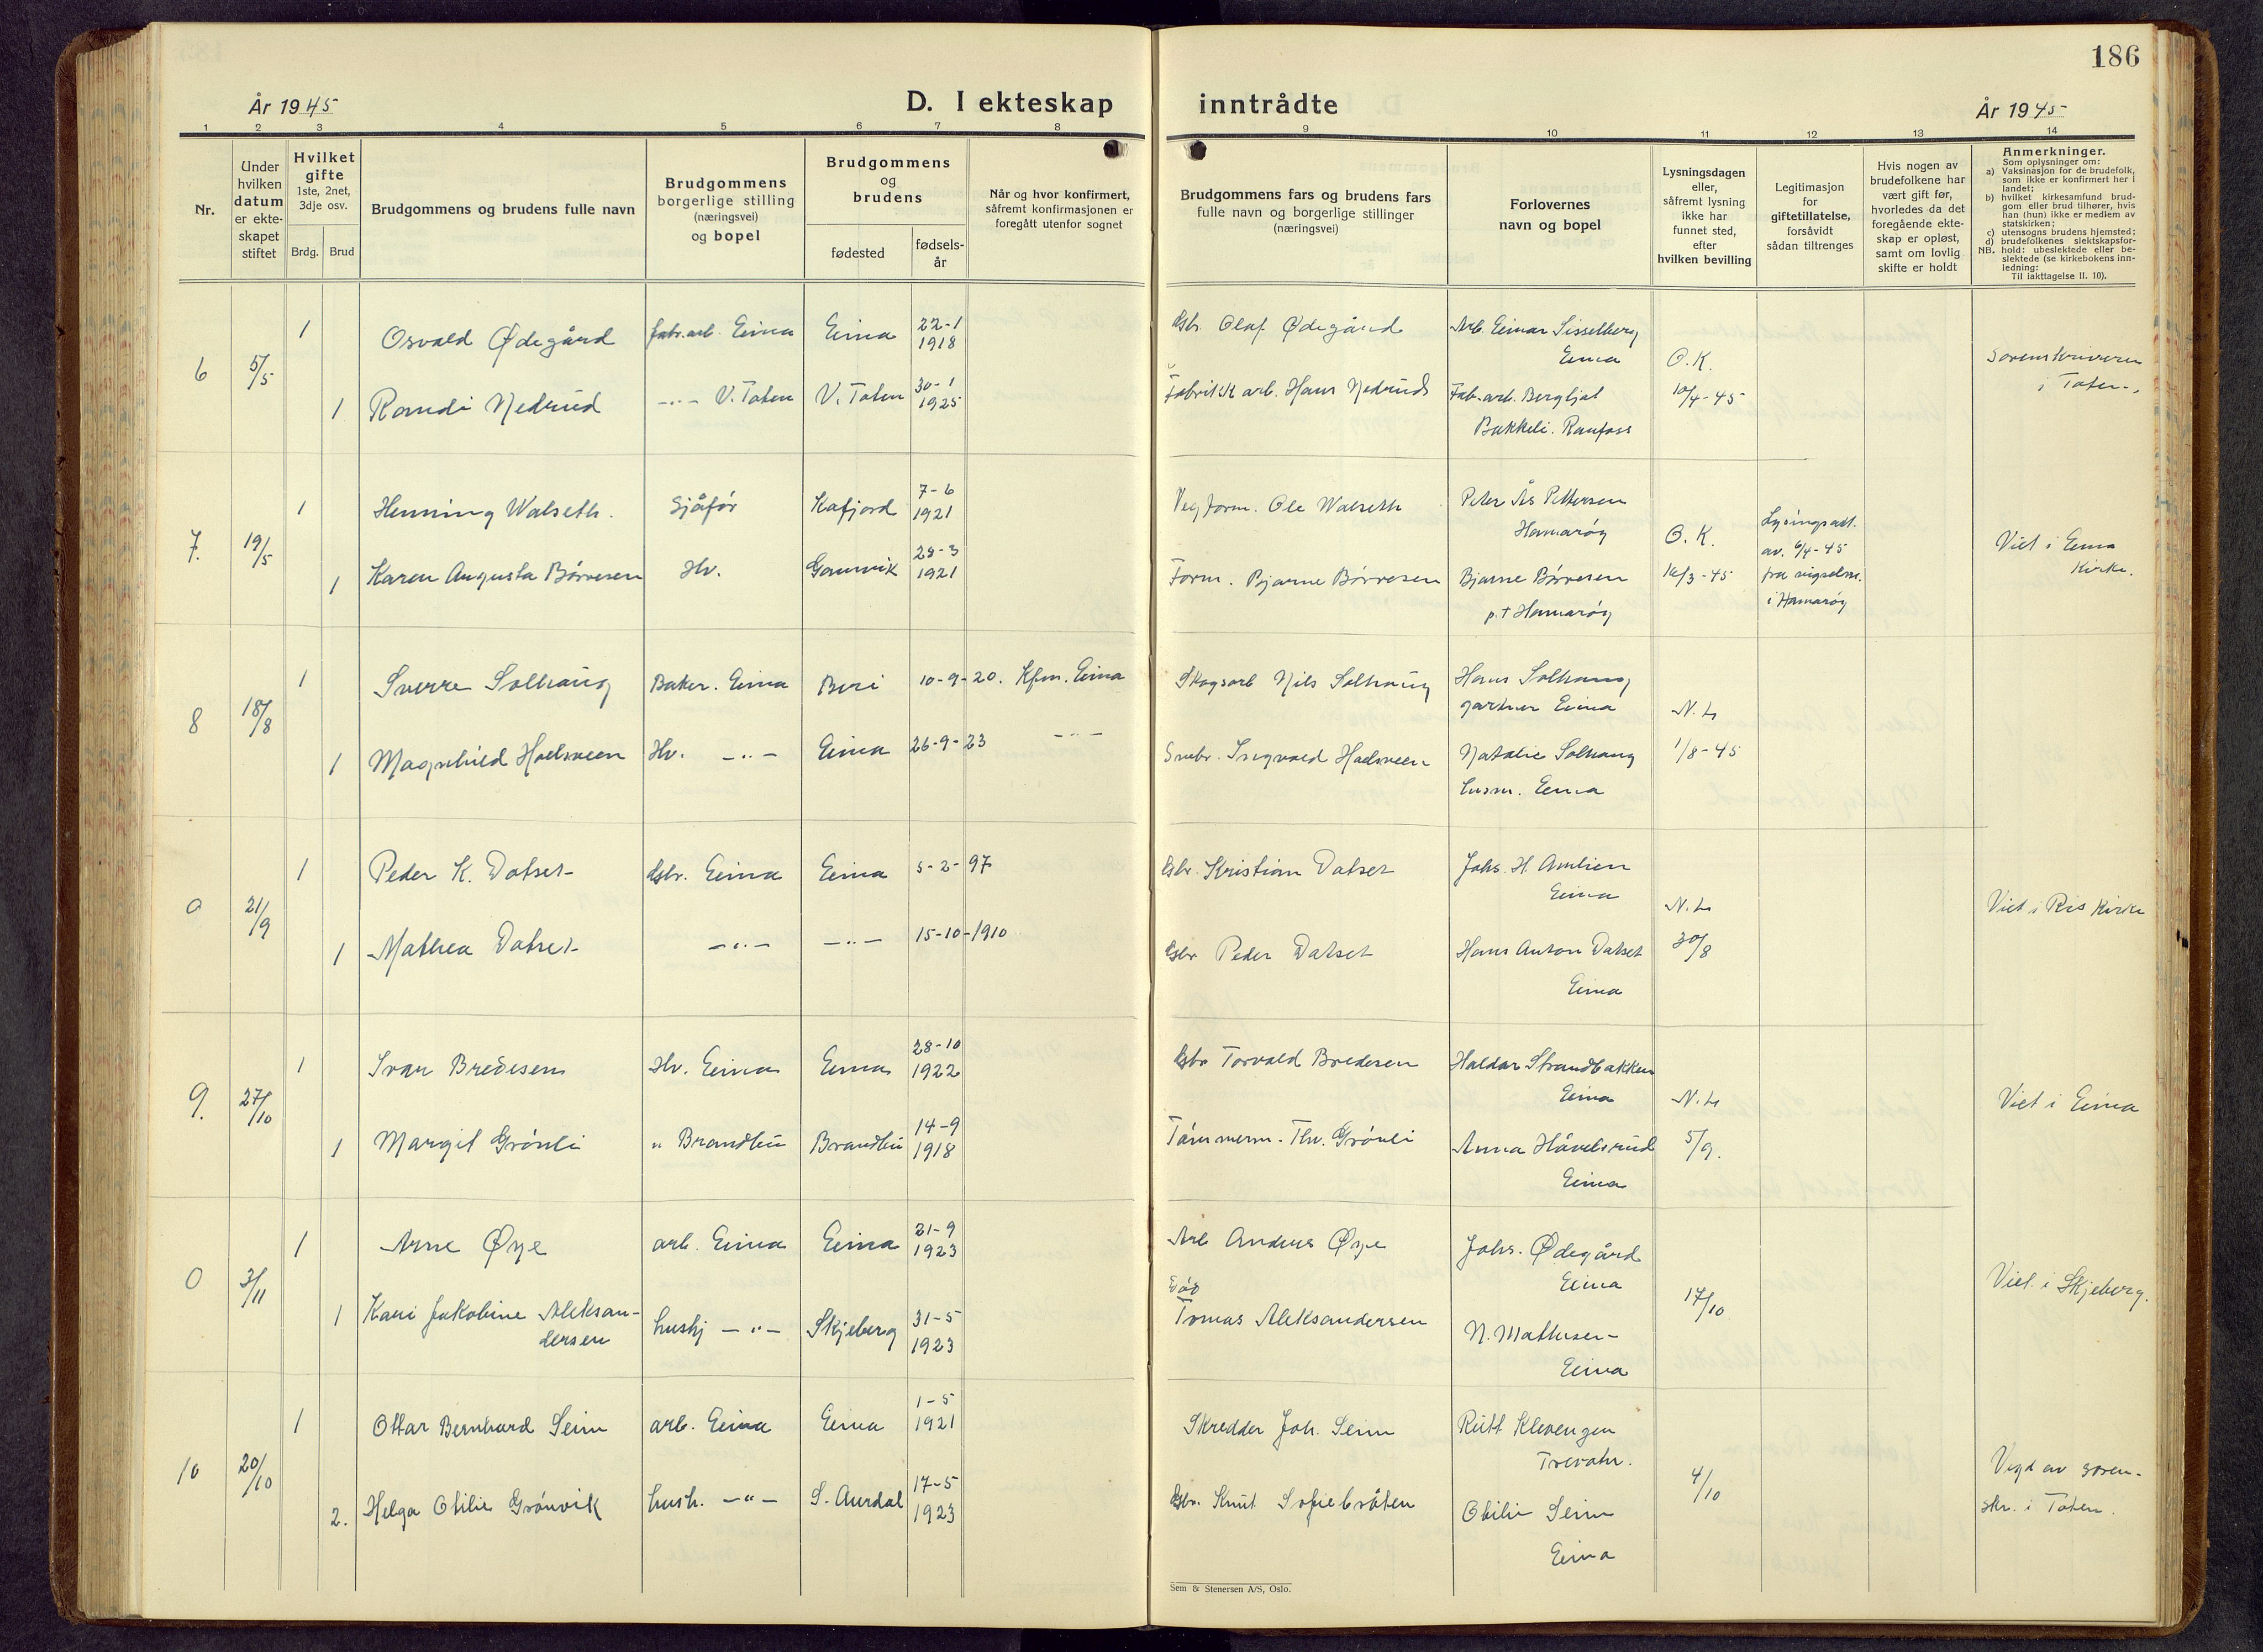 186
År 1945
D. I ekteskap
inntrådte
År 1945
1 2 3 4 5 6 7 8
9 10 11 12 13 14
Nr.
Under
hvilken
datum
er ekte-
skapet
stiftet
Hvilket
gifte
1ste, 2net,
3dje osv.
Brdg.
Brud
Brudgommens og brudens fulle navn
Brudgommens
borgerlige stilling
(næringsvei)
og bopel
Brudgommens
og
brudens
fødested
fødsels-
år
Når og hvor konfirmert,
såfremt konfirmasjonen er
foregått utenfor sognet
Brudgommens fars og brudens fars
fulle navn og borgerlige stillinger
(næringsvei)
Forlovernes
navn og bopel
Lysningsdagen
eller,
såfremt lysning
ikke har
funnet sted,
efter
hvilken bevilling
Legitimasjon
for
giftetillatelse,
forsåvidt
sådan tiltrenges
Hvis nogen av
brudefolkene har
vært gift før,
hvorledes da det
foregående ekte-
skap er opløst,
samt om lovlig
skifte er holdt
Anmerkninger.
Som oplysninger om:
a) Vaksinasjon for de brudefolk,
som ikke er konfirmert her i
landet;
b) hvilket kirkesamfund brud-
gom eller brud tilhører, hvis
han (hun) ikke er medlem av
statskirken;
c) utensogns brudens hjemsted;
d) brudefolkenes slektskapsfor-
NB. hold: ubeslektede eller be-
slektede (se kirkebokens inn-
ledning:
Til iakttagelse II. 10).
6
5/5
1
Osvald Ødegård
fabr.arb. Eina
Eina
22-1
1918
Gbr. Olaf Ødegård
Arb. Einar Sisselberg
Eina
O.K.
10/4-45
Sorenskriveren
i Toten
1
Randi Nedrud
-"- V. Toten
V. Toten
30-1
1925
Fabrikk arb. Hans Nedrud
Fab.arb. Bergljot
Bakkeli. Raufoss
7.
19/5
1
Henning Walseth.
Sjåfør
Kafjord
7-6
1921
Vegform. Ole Walseth
Peter Ås Pettersen
Hamarøy
O.K.
16/3-45
Lysingsatt.
av. 6/4-45
fra vigselsm.
i Hamarøy
Viet i Eina
Kirke.
1
Karen Augusta Børresen
Hv.
Gamvik
29-3
1921
Form. Bjarne Børresen
Bjarne Børresen
p.t Hamarøy
8
18/8
1
Sverre Solhaug
Baker. Eina
Biri
10-9-20.
Kfm. Eina
Skogsarb Nils Solhaug
Hans Solhaug
gartner Eina
N.L
1/8-45
1
Magnhild Hoelsveen
Hv. -"-
Eina
26-9-23
-"-
Smbr. Sigvald Hoelsveen
Natalie Solhaug
husm. Eina
0
21/9
1
Peder K. Datset
Gbr. Eina
Eina
5-2-97
Gbr. Kristian Datset
Johs. H. Amlien
Eina
N.L
30/8
Viet i Ris Kirke
1
Mathea Datset
-"-
-"-
15-10-1910
Gbr Peder Datset
Hans Anton Datset
Eina
9.
27/10
1
Ivar Bredesen
Hv. Eina
Eina
28-10
1922
Gbr Torvald Bredesen
Haldor Strandbakken
Eina
N.L
5/9.
Viet i Eina
1
Margit Grønli
" Brandbu
Brandbu
14-9
1918
Tømmerm. Thv. Grønli
Anna Håvelsrud
Eina
0
3/11
1
Arne Øye
arb. Eina
Eina
21-9
1923
Arb Anders Øye
Johs. Ødegård
Eina
17/10
Viet i Skjeberg.
1
Kari Jakobine Aleksan-
dersen
hushj -"-
Skjeberg
31-5
1923
Død
Tomas Aleksandersen
N. Mathisen
Eina
10
20/10
1
Ottar Bernhard Seim
arb. Eina
Eina
1-5
1921
Skredder Joh. Seim
Rutt Klevengen
Trevatn.
4/10
Vigd av soren-
skr. i Toten.
2.
Helga Otilie Grønvik
hush. -"-
S. Aurdal
17-5
1923
Gbr. Knut Sofiebråten
Otilie Seim
Eina
Sem & Stenersen A/S, Oslo.